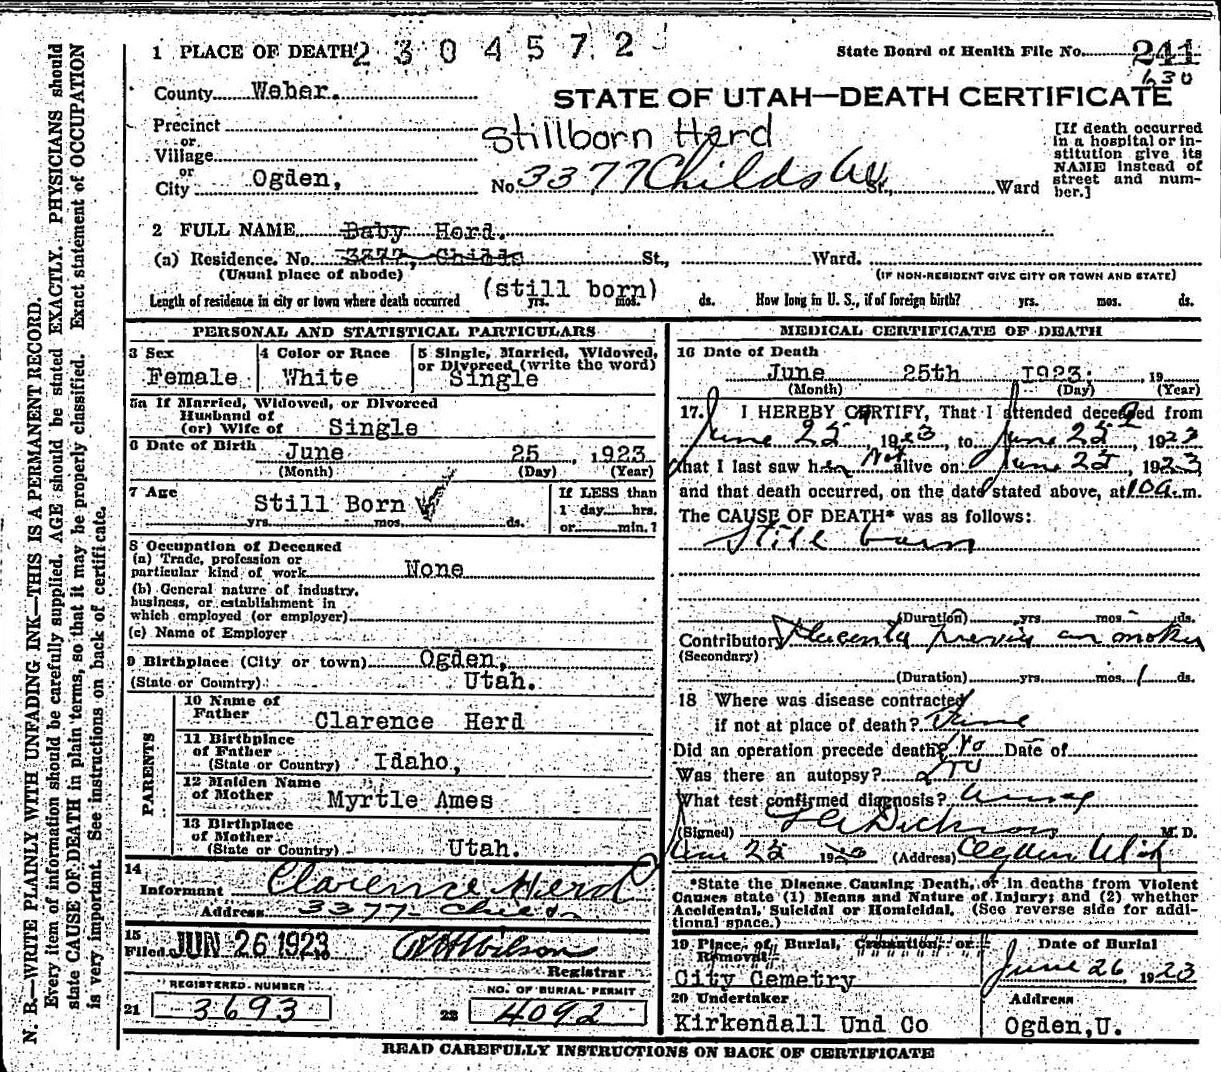 1 PLACE OF DEATH 2304572
State Board of Health File No. 241
630
County Weber.
STATE OF UTAH—DEATH CERTIFICATE
Precinct
or
Village
or
City Ogden,
Stillborn Herd
No. 3377 Childs Av St., Ward
[If death occurred
in a hospital or in-
stitution give its
NAME instead of
street and num-
ber.]
2 FULL NAME Baby Herd.
(a) Residence. No. 3377, Childs St., Ward.
(Usual place of abode)
(IF NON-RESIDENT GIVE CITY OR TOWN AND STATE)
(still born)
Length of residence in city or town where death occurred yrs. mos. ds. How long in U. S., if of foreign birth? yrs. mos. ds.
PERSONAL AND STATISTICAL PARTICULARS
3 Sex
Female
4 Color or Race
White
5 Single, Married, Widowed,
or Divorced (write the word)
Single
5a If Married, Widowed, or Divorced
Husband of
(or) Wife of Single
6 Date of Birth June 25, 1923
(Month) (Day) (Year)
7 Age
Still Born
yrs. mos. ds.
If LESS than
1 day hrs.
or min.?
8 Occupation of Deceased
(a) Trade, profession or
particular kind of work None
(b) General nature of industry,
business, or establishment in
which employed (or employer)
(c) Name of Employer
9 Birthplace (City or town) Ogden,
(State or Country) Utah.
PARENTS
10 Name of
Father Clarence Herd
11 Birthplace
of Father
(State or Country) Idaho,
12 Maiden Name
of Mother Myrtle Ames
13 Birthplace
of Mother
(State or Country) Utah.
14
Informant Clarence Herd
Address 3377 Childs
15
Filed JUN 26 1923 Wilson
Registrar
REGISTERED NUMBER
21 3693
NO. OF BURIAL PERMIT
22 4092
MEDICAL CERTIFICATE OF DEATH
16 Date of Death
June 25th 1923. , 19
(Month) (Day) (Year)
17. I HEREBY CERTIFY, That I attended deceased from
June 25, 1923, to June 25, 1923
that I last saw her Not alive on June 25, 1923,
and that death occurred, on the date stated above, at 10 a. m.
The CAUSE OF DEATH* was as follows:
Still born
(Duration) yrs. mos. ds.
Contributory Placenta previa in mother
(Secondary)
(Duration) yrs. mos. 1 ds.
18 Where was disease contracted
if not at place of death?
Did an operation precede death? No Date of
Was there an autopsy? No
What test confirmed diagnosis?
(Signed) Dickson M. D.
June 25 19 (Address) Ogden Utah
*State the Disease Causing Death, or in deaths from Violent
Causes state (1) Means and Nature of Injury; and (2) whether
Accidental, Suicidal or Homicidal. (See reverse side for addi-
tional space.)
19 Place of Burial, Cremation or
Removal
City Cemetry
Date of Burial
June 26, 1923
20 Undertaker
Kirkendall Und Co
Address
Ogden,U.
READ CAREFULLY INSTRUCTIONS ON BACK OF CERTIFICATE
N. B.—WRITE PLAINLY WITH UNFADING INK—THIS IS A PERMANENT RECORD.
Every item of information should be carefully supplied. AGE should be stated EXACTLY. PHYSICIANS should
state CAUSE OF DEATH in plain terms, so that it may be properly classified. Exact statement of OCCUPATION
is very important. See instructions on back of certificate.